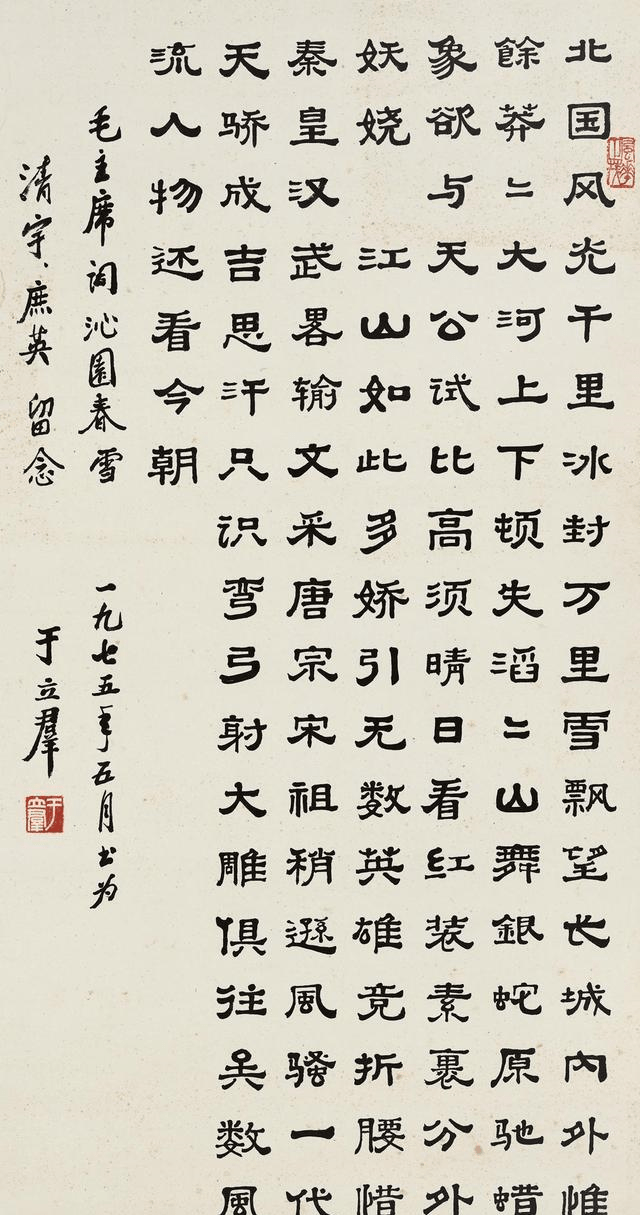 風華正茂
北国风光千里冰封万里雪飘望长城内外惟
餘莽〻大河上下顿失滔〻山舞銀蛇原驰蜡
象欲与天公试比高须晴日看红装素裹分外
妖娆江山如此多娇引无数英雄竞折腰惜
秦皇汉武畧输文采唐宗宋祖稍遜風骚一代
天骄成吉思汗只识弯弓射大雕俱往矣数風
流人物还看今朝
毛主席词沁園春雪 一九七五年五月书为
清宇、庶英留念 于立羣
于立羣